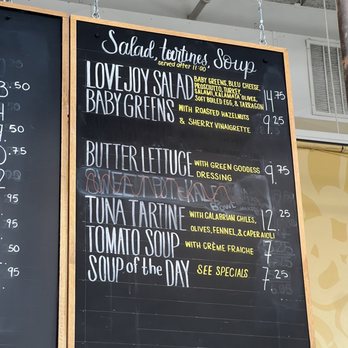 Salad, tartines, Soup
served after 11:00
LOVEJOY SALAD BABY GREENS, BLEU CHEESE,
PROSCIUTTO, TURKEY
SALAMI, KALAMATA OLIVES,
SOFT BOILED EGG, & TARRAGON 14.75
BABY GREENS WITH ROASTED HAZELNUTS
& SHERRY VINAIGRETTE 9.25
BUTTER LETTUCE WITH GREEN GODDESS
DRESSING 9.75
TUNA TARTINE WITH CALABRIAN CHILES,
OLIVES, FENNEL, & CAPER AIOLI 12.25
TOMATO SOUP WITH CRÈME FRAICHE 7
SOUP of the DAY SEE SPECIALS 7.25
.50
.50
.95
.50
.95
.95